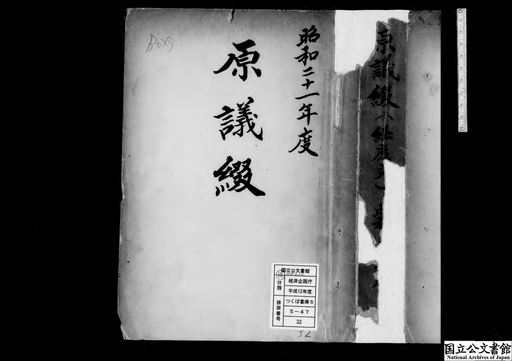 昭和二十一年度
原議綴
原議綴
Box9
国立公文書館
分類
経済企画庁
平成12年度
つくば書庫5
5-47
32
排架番号
52
国立公文書館
National Archives of Japan